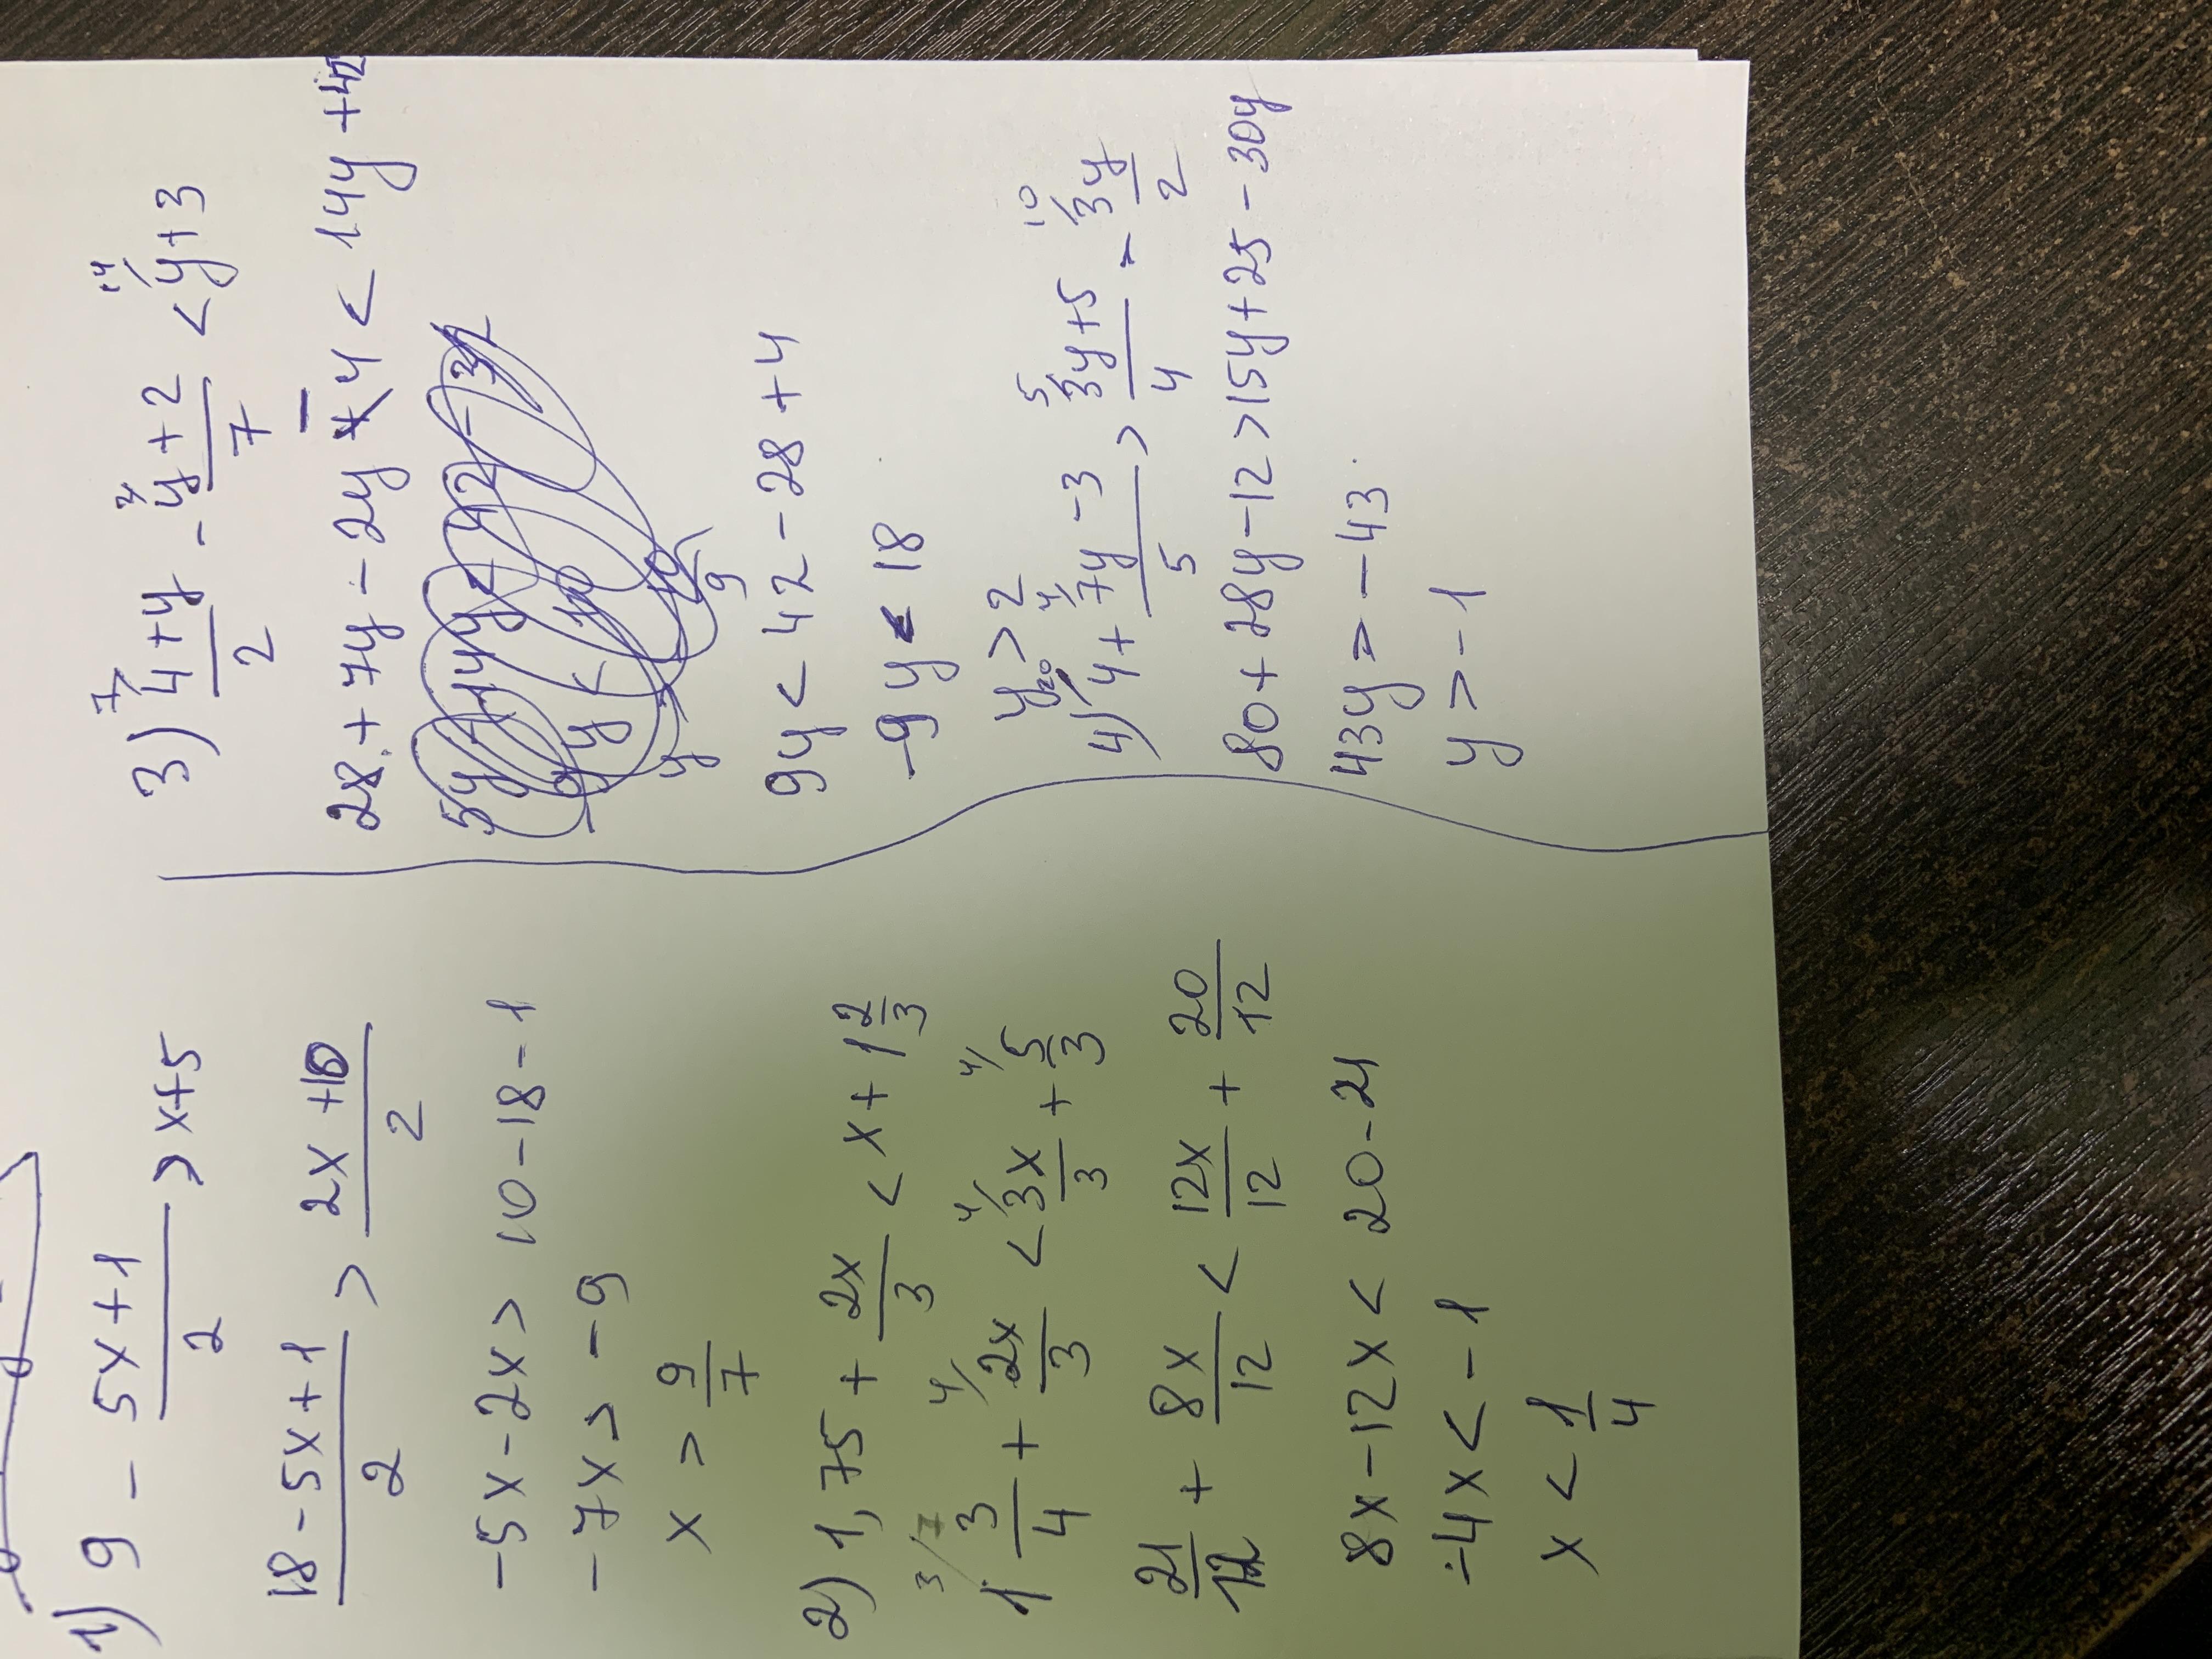 1) 9 - (5x+1)/2 > x+5
(18-5x+1)/2 > (2x+10)/2
-5x-2x > 10-18-1
-7x > -9
x > 9/7
2) 1,75 + 2x/3 < x+1 2/3
3/ 4/ 4/ 4/
1 3/4 + 2x/3 < 3x/3 + 5/3
21/12 + 8x/12 < 12x/12 + 20/12
8x-12x < 20-21
-4x < -1
x < 1/4
7/ 2/ 14/
3) (4+y)/2 - (y+2)/7 < y+3
28+7y-2y-4 < 14y+42
9y < 42-28+4
-9y < 18
y > 2
20/ 4/ 5/ 10/
4) 4 + (7y-3)/5 > (3y+5)/4 - 3y/2
80+28y-12 > 15y+25-30y
43y > -43
y > -1